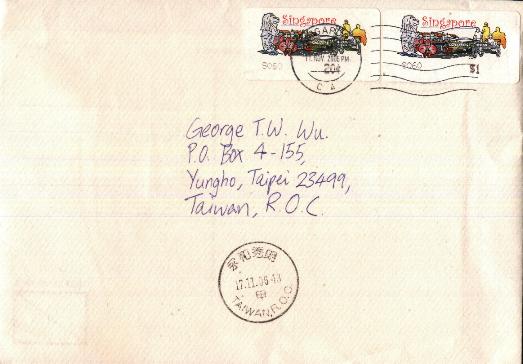 Singapore
Singapore
11 NOV 2006 PM
20¢
$1
George T.W. Wu.
P.O. Box 4-155,
Yungho, Taipei 23499,
Taiwan, R.O.C.
17.11.06-13
TAIWAN, R.O.C.